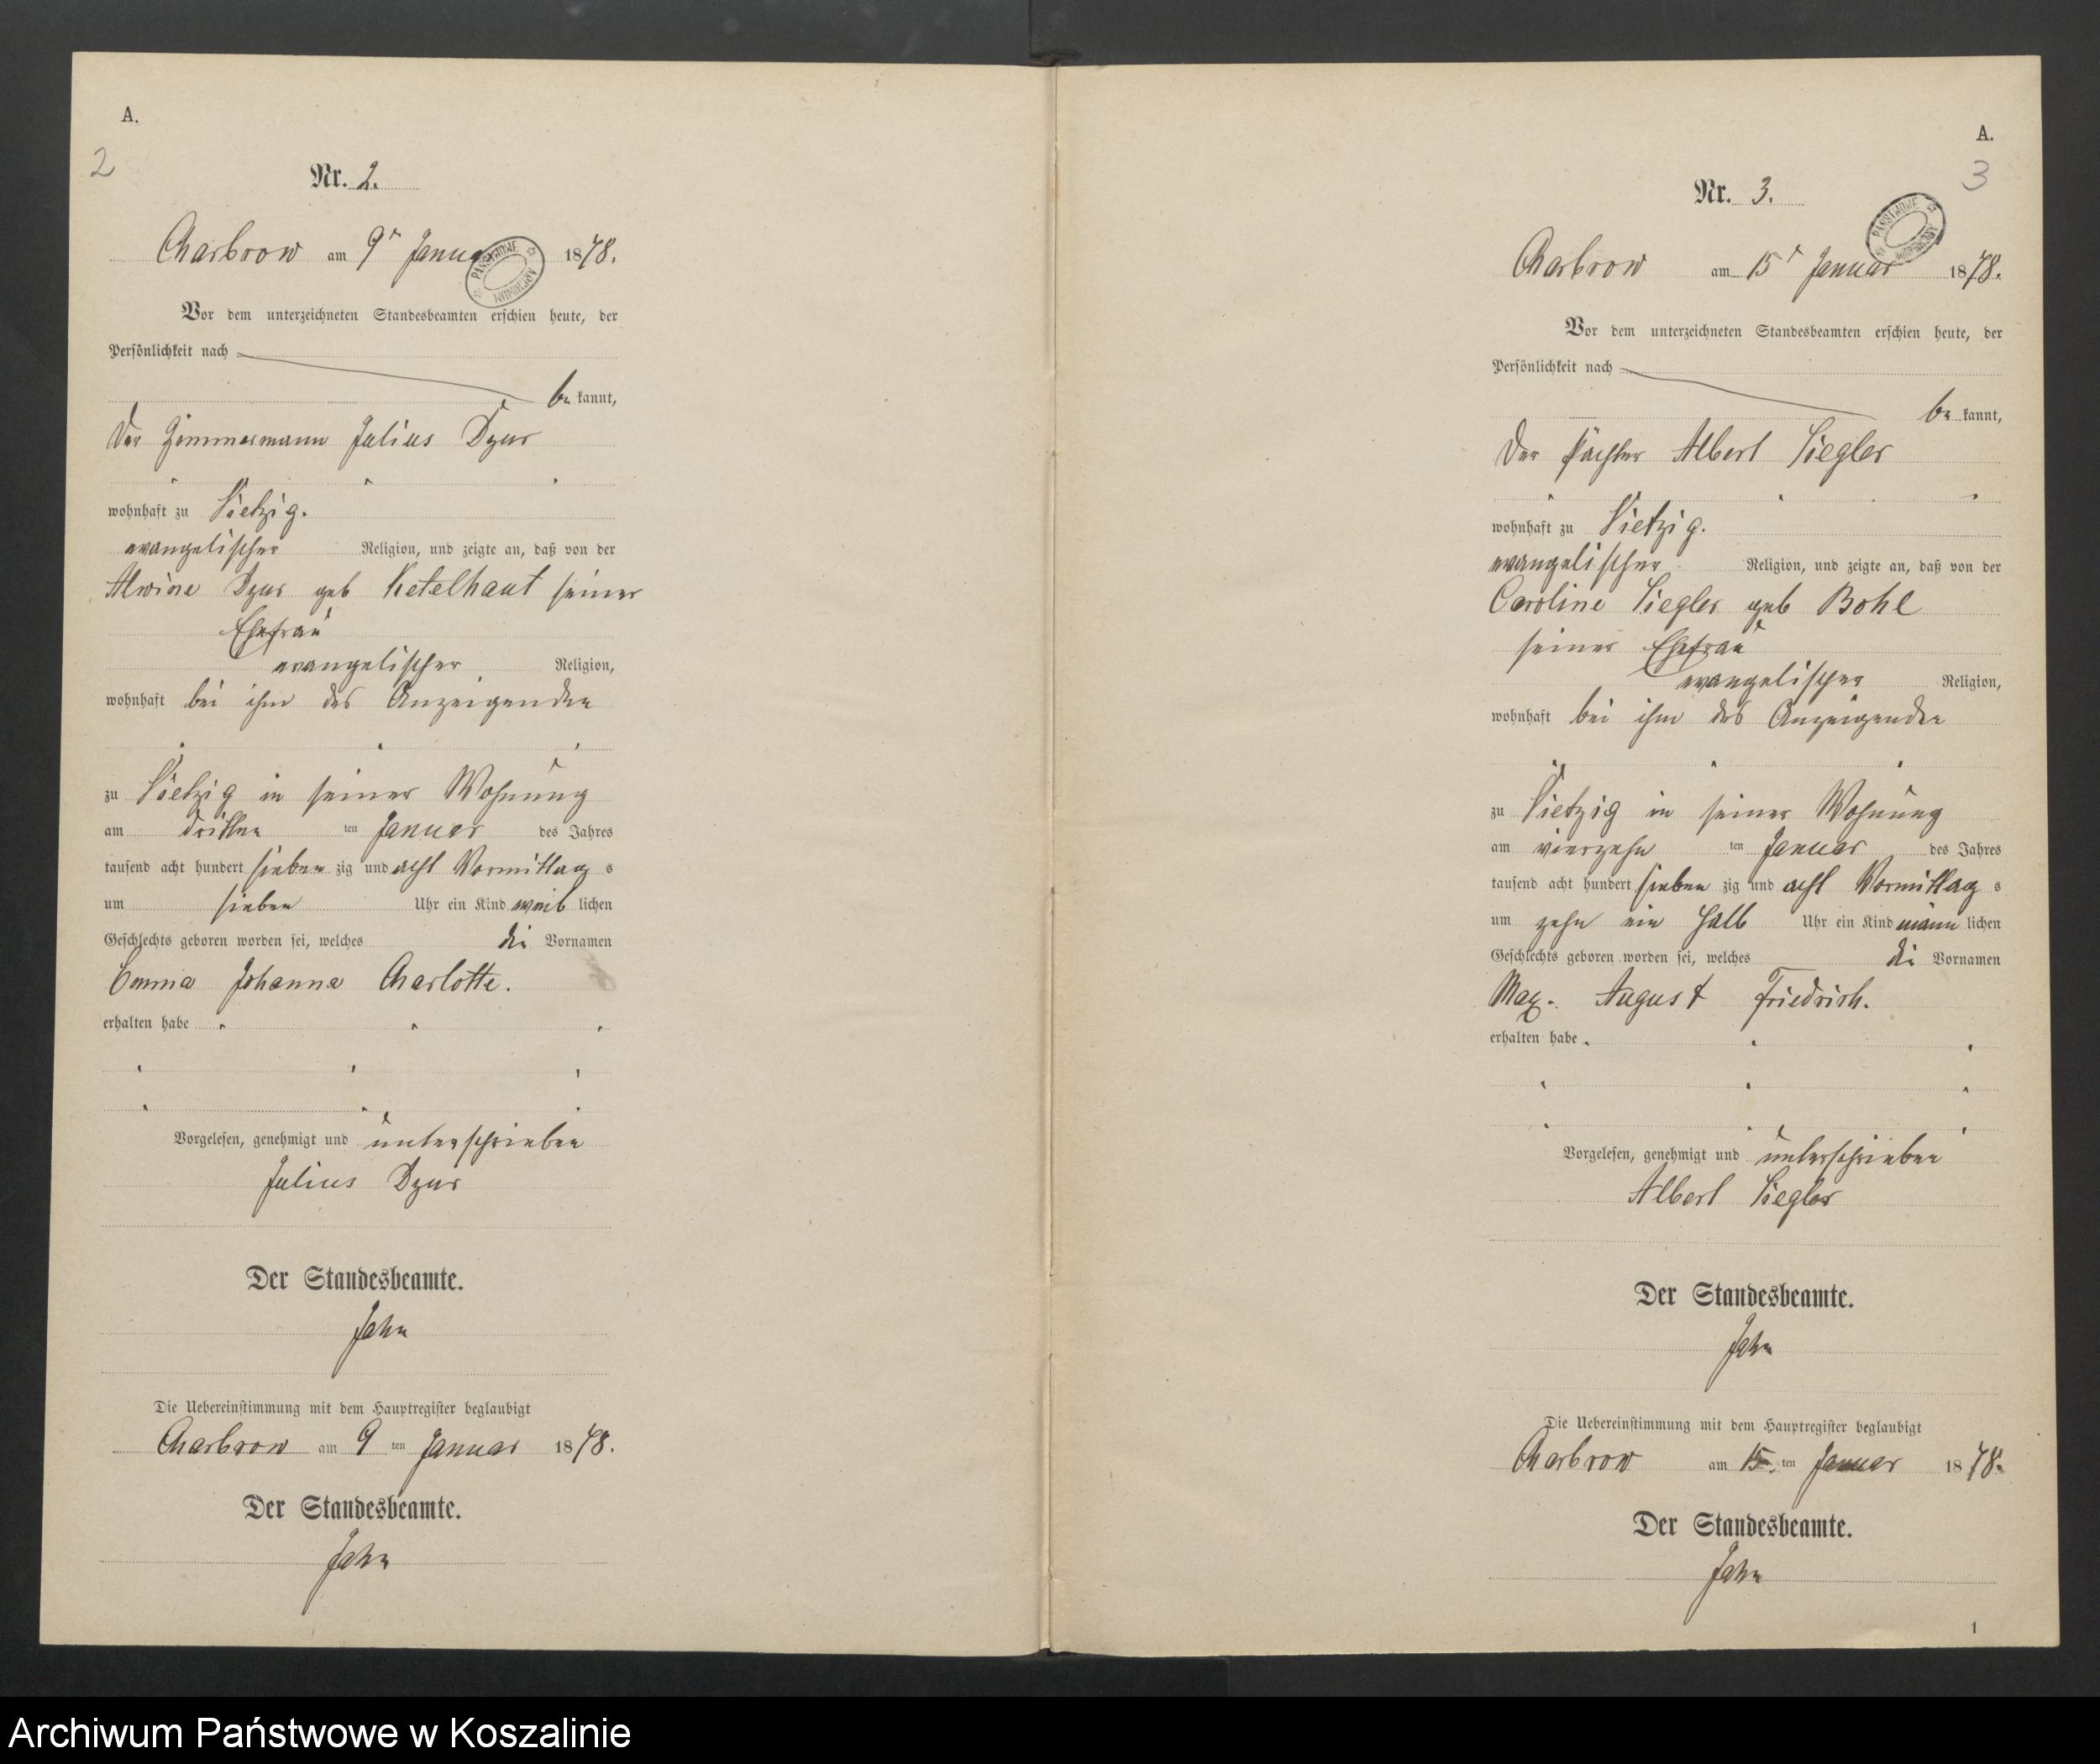 A.
2
Nr. 2.
Charbrow am 9ⁿ Januar 1878.
PAŃSTWOWE ARCHIWUM
Vor dem unterzeichneten Standesbeamten erschien heute, der
Persönlichkeit nach
be kannt,
Der Zimmermann Julius Dzur
wohnhaft zu Vietzig.
evangelischer Religion, und zeigte an, daß von der
Alwine Dzur geb Ketelhaut seiner
Ehefrau
evangelischer Religion,
wohnhaft bei ihm des Anzeigenden
zu Vietzig in seiner Wohnung
am dritten ten Januar des Jahres
tausend acht hundert sieben zig und acht Vormittag s
um sieben Uhr ein Kind weib lichen
Geschlechts geboren worden sei, welches die Vornamen
Emma Johanna Charlotte.
erhalten habe
Vorgelesen, genehmigt und unterschrieben
Julius Dzur
Der Standesbeamte.
Jahn
Die Uebereinstimmung mit dem Hauptregister beglaubigt
Charbrow am 9 ten Januar 1878.
Der Standesbeamte.
Jahn
A.
3
Nr. 3.
PAŃSTWOWE ARCHIWUM
Charbrow am 15ⁿ Januar 1878.
Vor dem unterzeichneten Standesbeamten erschien heute, der
Persönlichkeit nach
be kannt,
Der Pächter Albert Siegler
wohnhaft zu Vietzig.
evangelischer Religion, und zeigte an, daß von der
Caroline Siegler geb Bohl
seiner Ehefrau
evangelischer Religion,
wohnhaft bei ihm des Anzeigenden
zu Vietzig in seiner Wohnung
am vierzehn ten Januar des Jahres
tausend acht hundert sieben zig und acht Vormittag s
um zehn ein halb Uhr ein Kind männ lichen
Geschlechts geboren worden sei, welches die Vornamen
Max. August Friedrich.
erhalten habe
Vorgelesen, genehmigt und unterschrieben
Albert Siegler
Der Standesbeamte.
Jahn
Die Uebereinstimmung mit dem Hauptregister beglaubigt
Charbrow am 15. ten Januar 1878.
Der Standesbeamte.
Jahn
1
Archiwum Państwowe w Koszalinie